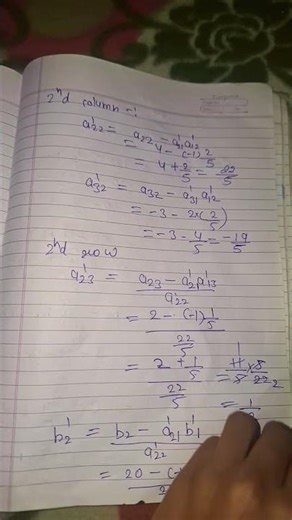 2nd column :-
a'22 = a22 - a'21 a'12
= 4 - (-1) 2/5
= 4 + 2/5 = 22/5
a'32 = a32 - a'31 a'12
= -3 - 2x(2/5)
= -3 - 4/5 = -19/5
2nd row
a'23 = a23 - a'21 a'13 / a'22
= 2 - (-1) 1/5 / 22/5
= 2 + 1/5 / 22/5 = 11/5 x 5/22 2
= 1/2
b'2 = b2 - a'21 b'1 / a'22
= 20 - (-